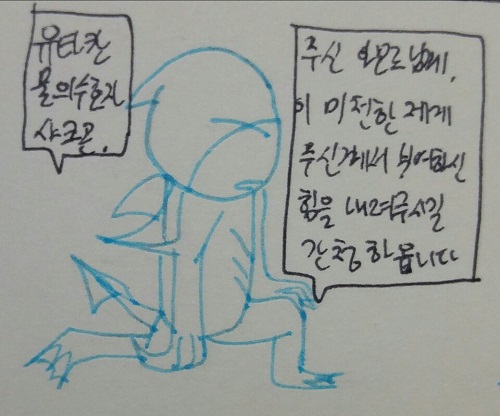 유타칸
물의수호자
샤크곤.
주신 아모로님께,
이 미천한 제게
주신께서 부여하신
힘을 내려주시길
간청하옵니다